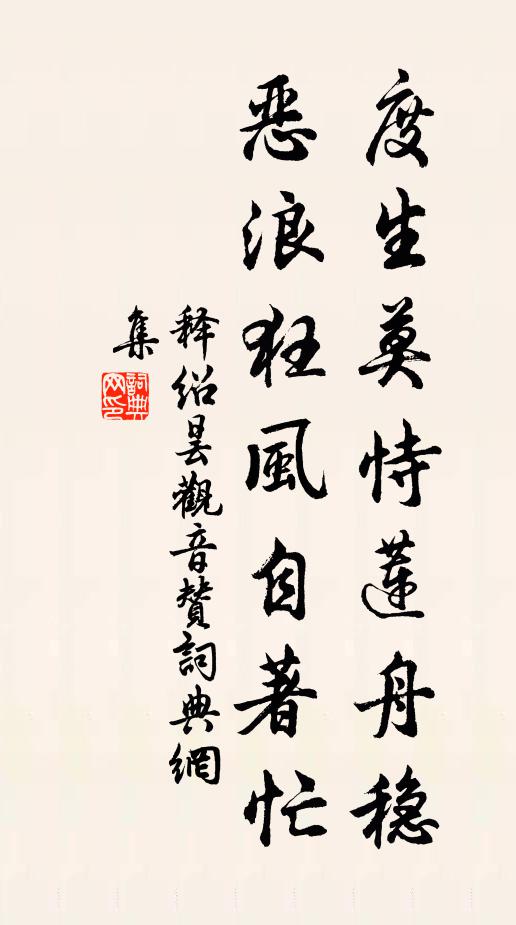 度生莫恃蓮舟穩
惡浪狂風自著忙
释绍昙觀音賛詞典網
集
詞典
网印